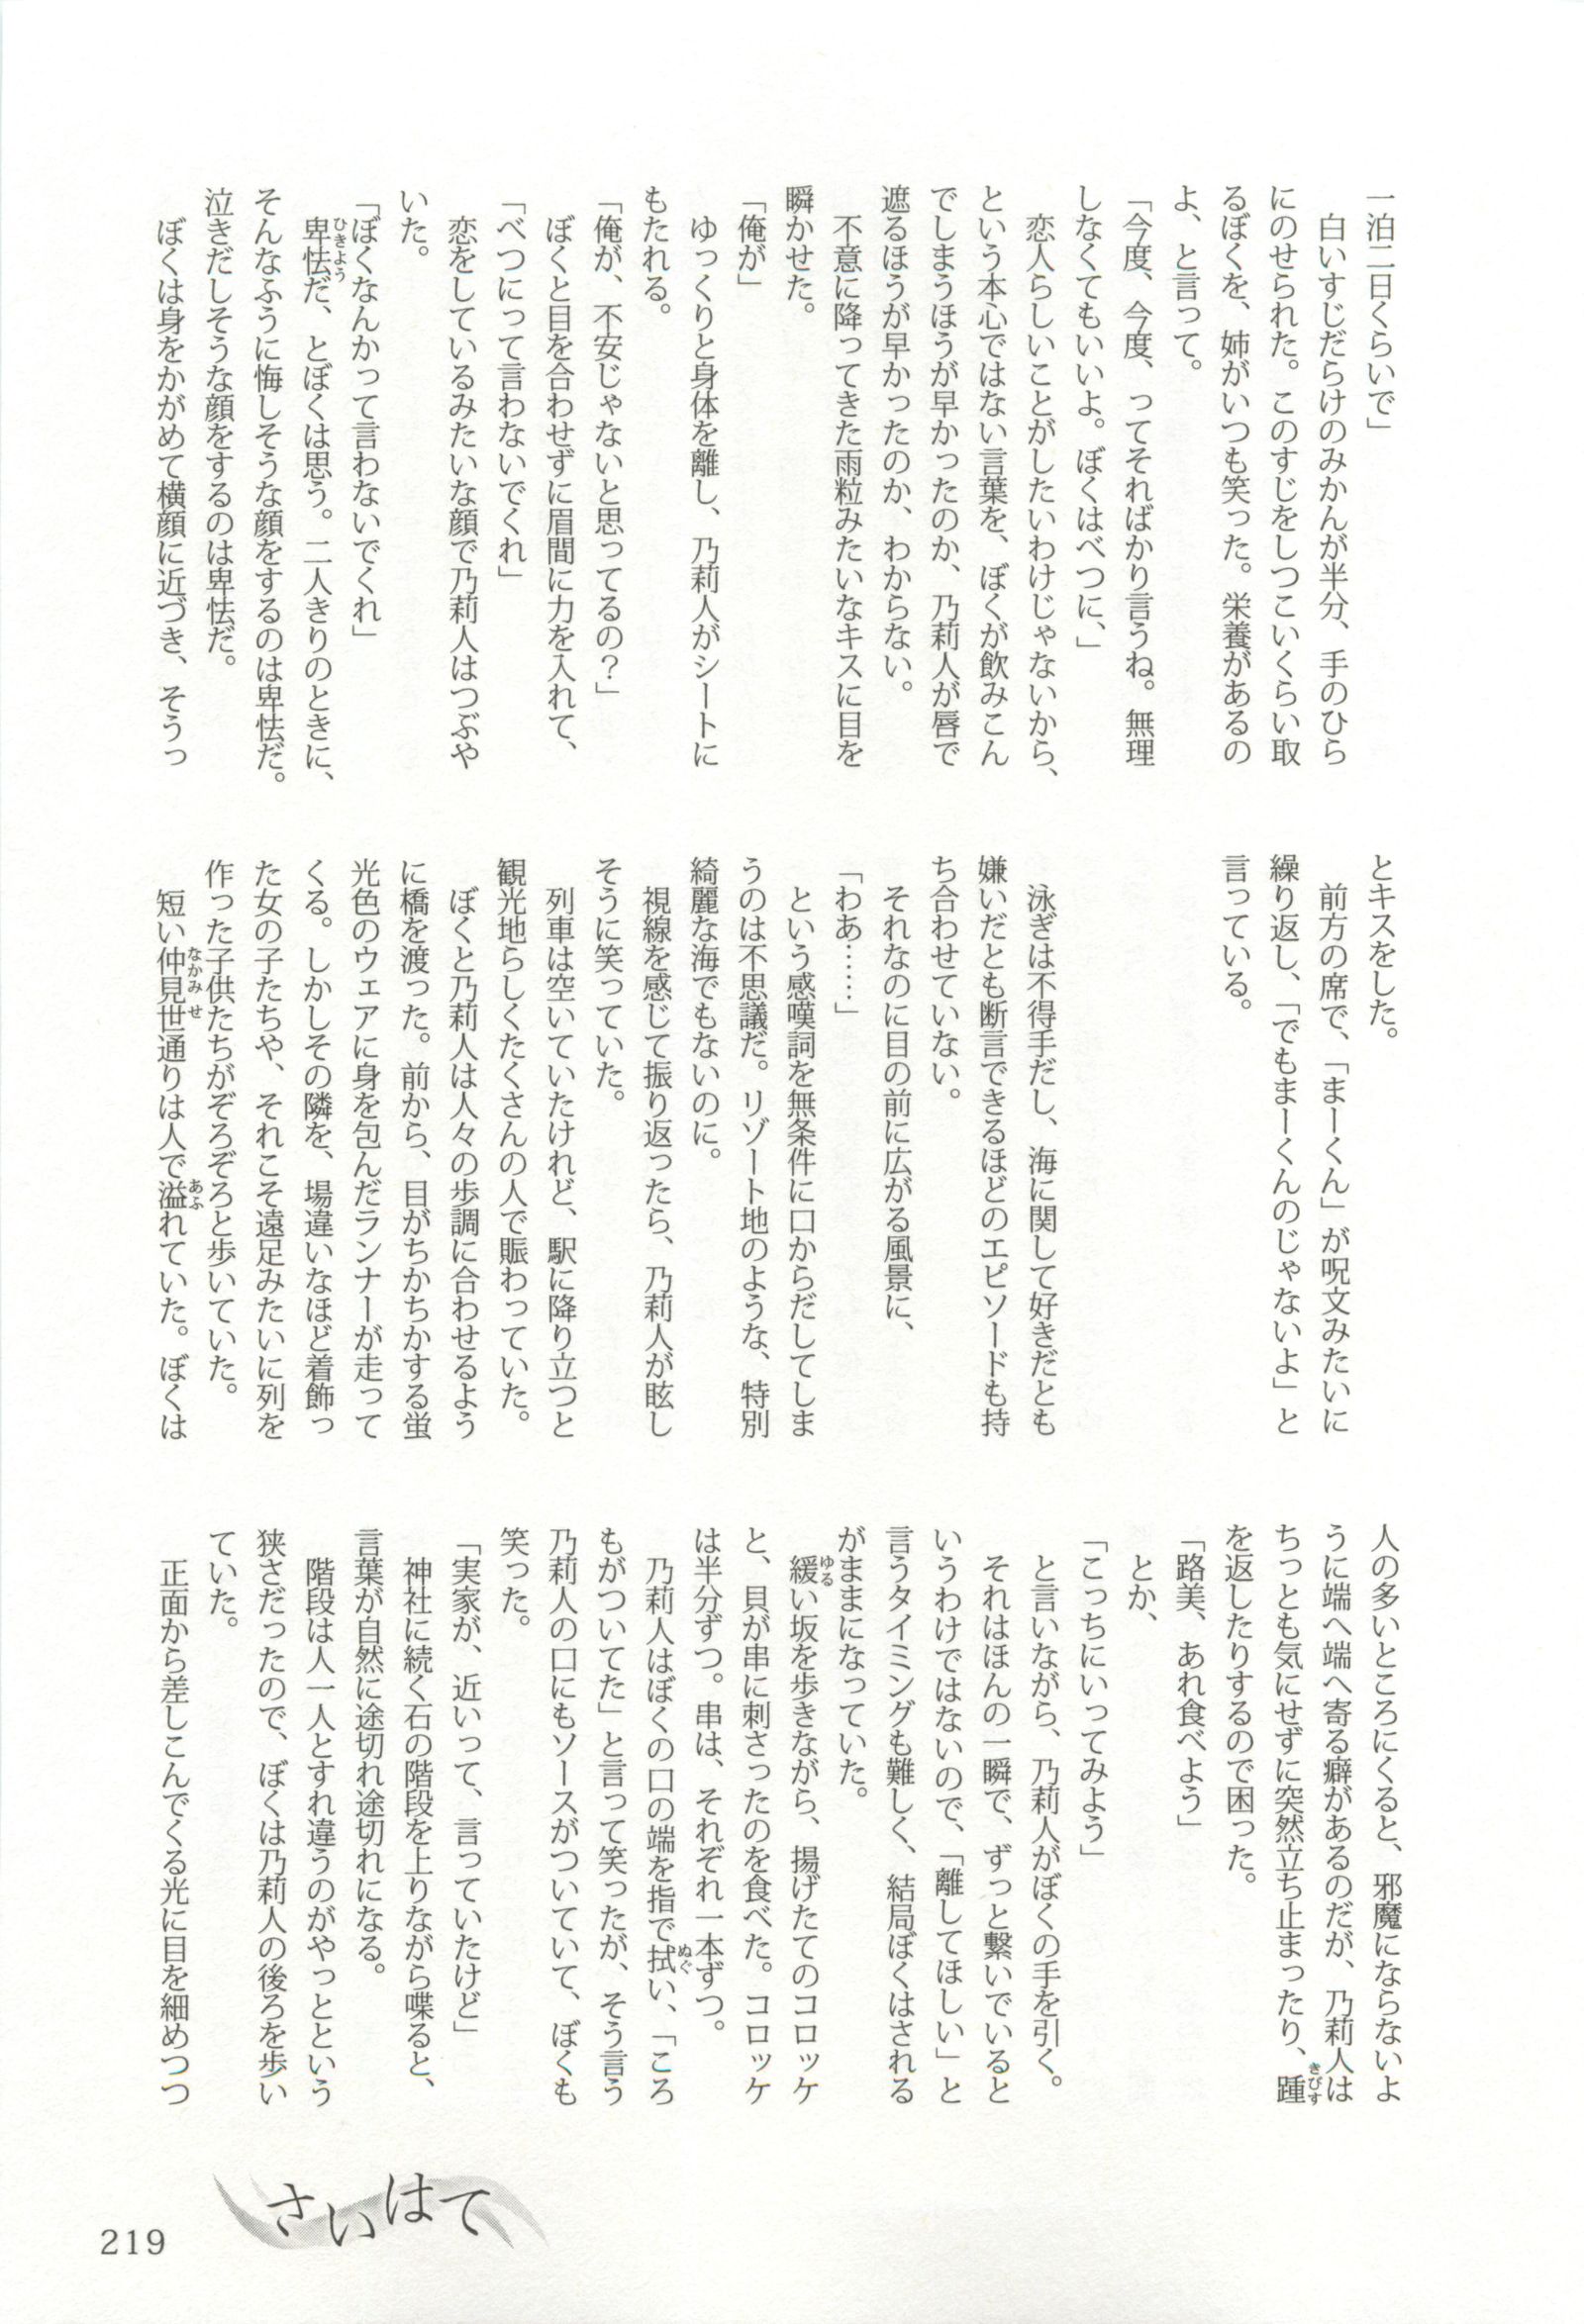 一泊二日くらいで」
　白いすじだらけのみかんが半分、手のひら
にのせられた。このすじをしつこいくらい取
るぼくを、姉がいつも笑った。栄養があるの
よ、と言って。
「今度、今度、ってそればかり言うね。無理
しなくてもいいよ。ぼくはべつに、」
　恋人らしいことがしたいわけじゃないから、
という本心ではない言葉を、ぼくが飲みこん
でしまうほうが早かったのか、乃莉人が唇で
遮るほうが早かったのか、わからない。
　不意に降ってきた雨粒みたいなキスに目を
瞬かせた。
「俺が」
　ゆっくりと身体を離し、乃莉人がシートに
もたれる。
「俺が、不安じゃないと思ってるの？」
　ぼくと目を合わせずに眉間に力を入れて、
「べつにって言わないでくれ」
　恋をしているみたいな顔で乃莉人はつぶや
いた。
「ぼくなんかって言わないでくれ」
　卑怯だ、とぼくは思う。二人きりのときに、
そんなふうに悔しそうな顔をするのは卑怯だ。
泣きだしそうな顔をするのは卑怯だ。
　ぼくは身をかがめて横顔に近づき、そうっ
とキスをした。
　前方の席で、「まーくん」が呪文みたいに
繰り返し、「でもまーくんのじゃないよ」と
言っている。
　泳ぎは不得手だし、海に関して好きだとも
嫌いだとも断言できるほどのエピソードも持
ち合わせていない。
　それなのに目の前に広がる風景に、
「わあ……」
　という感嘆詞を無条件に口からだしてしま
うのは不思議だ。リゾート地のような、特別
綺麗な海でもないのに。
　視線を感じて振り返ったら、乃莉人が眩し
そうに笑っていた。
　列車は空いていたけれど、駅に降り立つと
観光地らしくたくさんの人で賑わっていた。
　ぼくと乃莉人は人々の歩調に合わせるよう
に橋を渡った。前から、目がちかちかする蛍
光色のウェアに身を包んだランナーが走って
くる。しかしその隣を、場違いなほど着飾っ
た女の子たちや、それこそ遠足みたいに列を
作った子供たちがぞろぞろと歩いていた。
　短い仲見世通りは人で溢れていた。ぼくは
人の多いところにくると、邪魔にならないよ
うに端へ端へ寄る癖があるのだが、乃莉人は
ちっとも気にせずに突然立ち止まったり、踵
を返したりするので困った。
「路美、あれ食べよう」
　とか、
「こっちにいってみよう」
　と言いながら、乃莉人がぼくの手を引く。
　それはほんの一瞬で、ずっと繋いでいると
いうわけではないので、「離してほしい」と
言うタイミングも難しく、結局ぼくはされる
がままになっていた。
　緩い坂を歩きながら、揚げたてのコロッケ
と、貝が串に刺さったのを食べた。コロッケ
は半分ずつ。串は、それぞれ一本ずつ。
　乃莉人はぼくの口の端を指で拭い、「ころ
もがついてた」と言って笑ったが、そう言う
乃莉人の口にもソースがついていて、ぼくも
笑った。
「実家が、近いって、言っていたけど」
　神社に続く石の階段を上りながら喋ると、
言葉が自然に途切れ途切れになる。
　階段は人一人とすれ違うのがやっとという
狭さだったので、ぼくは乃莉人の後ろを歩い
ていた。
　正面から差しこんでくる光に目を細めつつ
さいはて
219